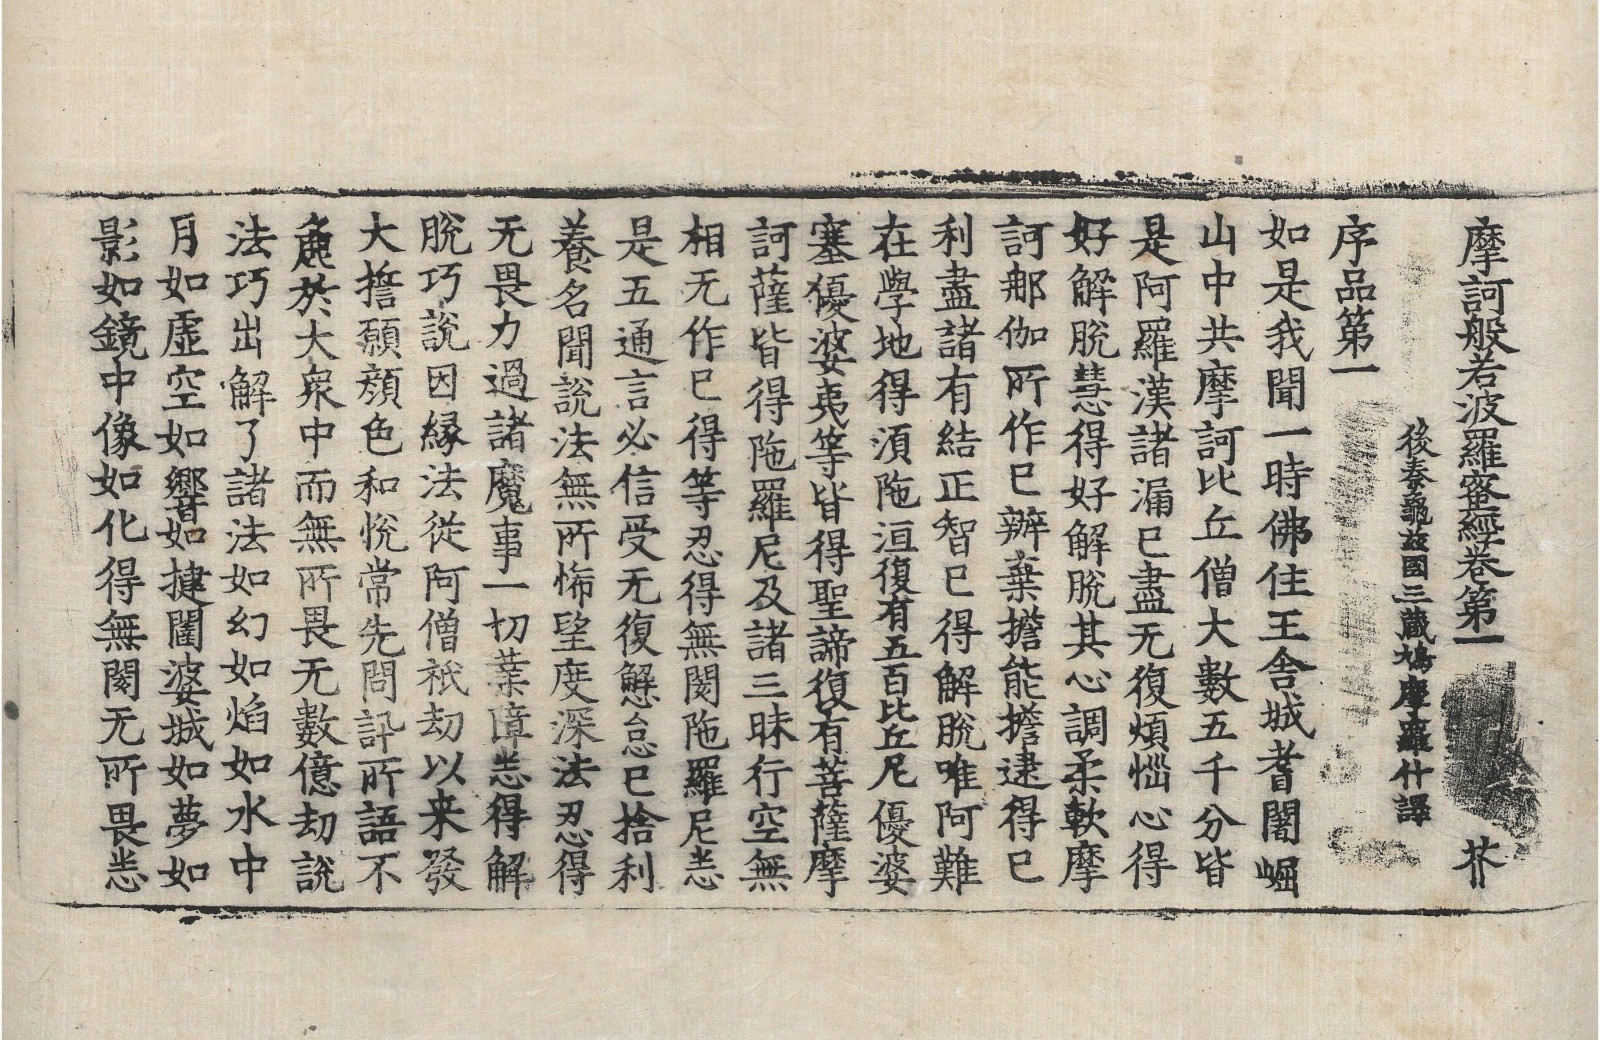 摩訶般若波羅蜜經卷第一 芥
後秦龜茲國三藏鳩摩羅什譯
序品第一
如是我聞一時佛住王舍城耆闍崛
山中共摩訶比丘僧大數五千分皆
是阿羅漢諸漏已盡无復煩惱心得
好解脫慧得好解脫其心調柔軟摩
訶那伽所作已辦棄擔能擔逮得已
利盡諸有結正智已得解脫唯阿難
在學地得湏陁洹復有五百比丘尼優婆
塞優婆夷等皆得聖諦復有菩薩摩
訶薩皆得陁羅尼及諸三昧行空無
相无作已得等忍得無閡陁羅尼悉
是五通言必信受无復懈怠已捨利
養名聞說法無所悕望度深法忍得
无畏力過諸魔事一切業障悉得解
脫巧說因緣法從阿僧祇劫以来發
大誓願顏色和悅常先問訊所語不
麁於大衆中而無所畏无數億劫說
法巧出解了諸法如幻如焰如水中
月如虛空如響如揵闥婆城如夢如
影如鏡中像如化得無閡无所畏悉